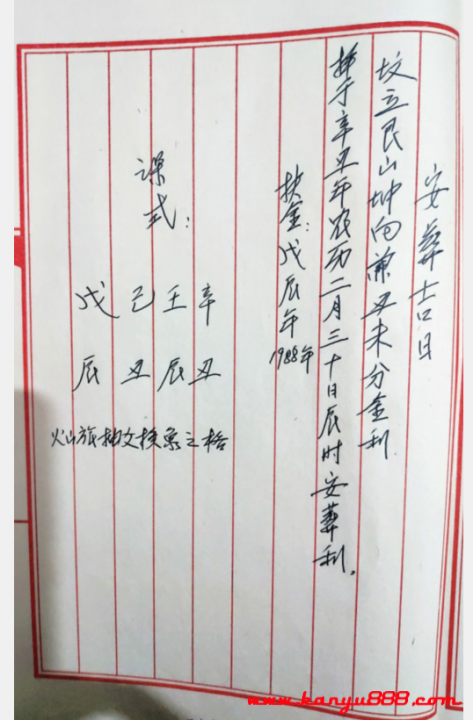 安葬吉日
坟立艮山坤向兼丑未分金利
择于辛丑年农历二月三十日辰时安葬利。
扶金：戊辰年1988年
课式：
辛 壬 己 戊
丑 辰 丑 辰
火山旅抽爻换象之格
www.kanyu888.com